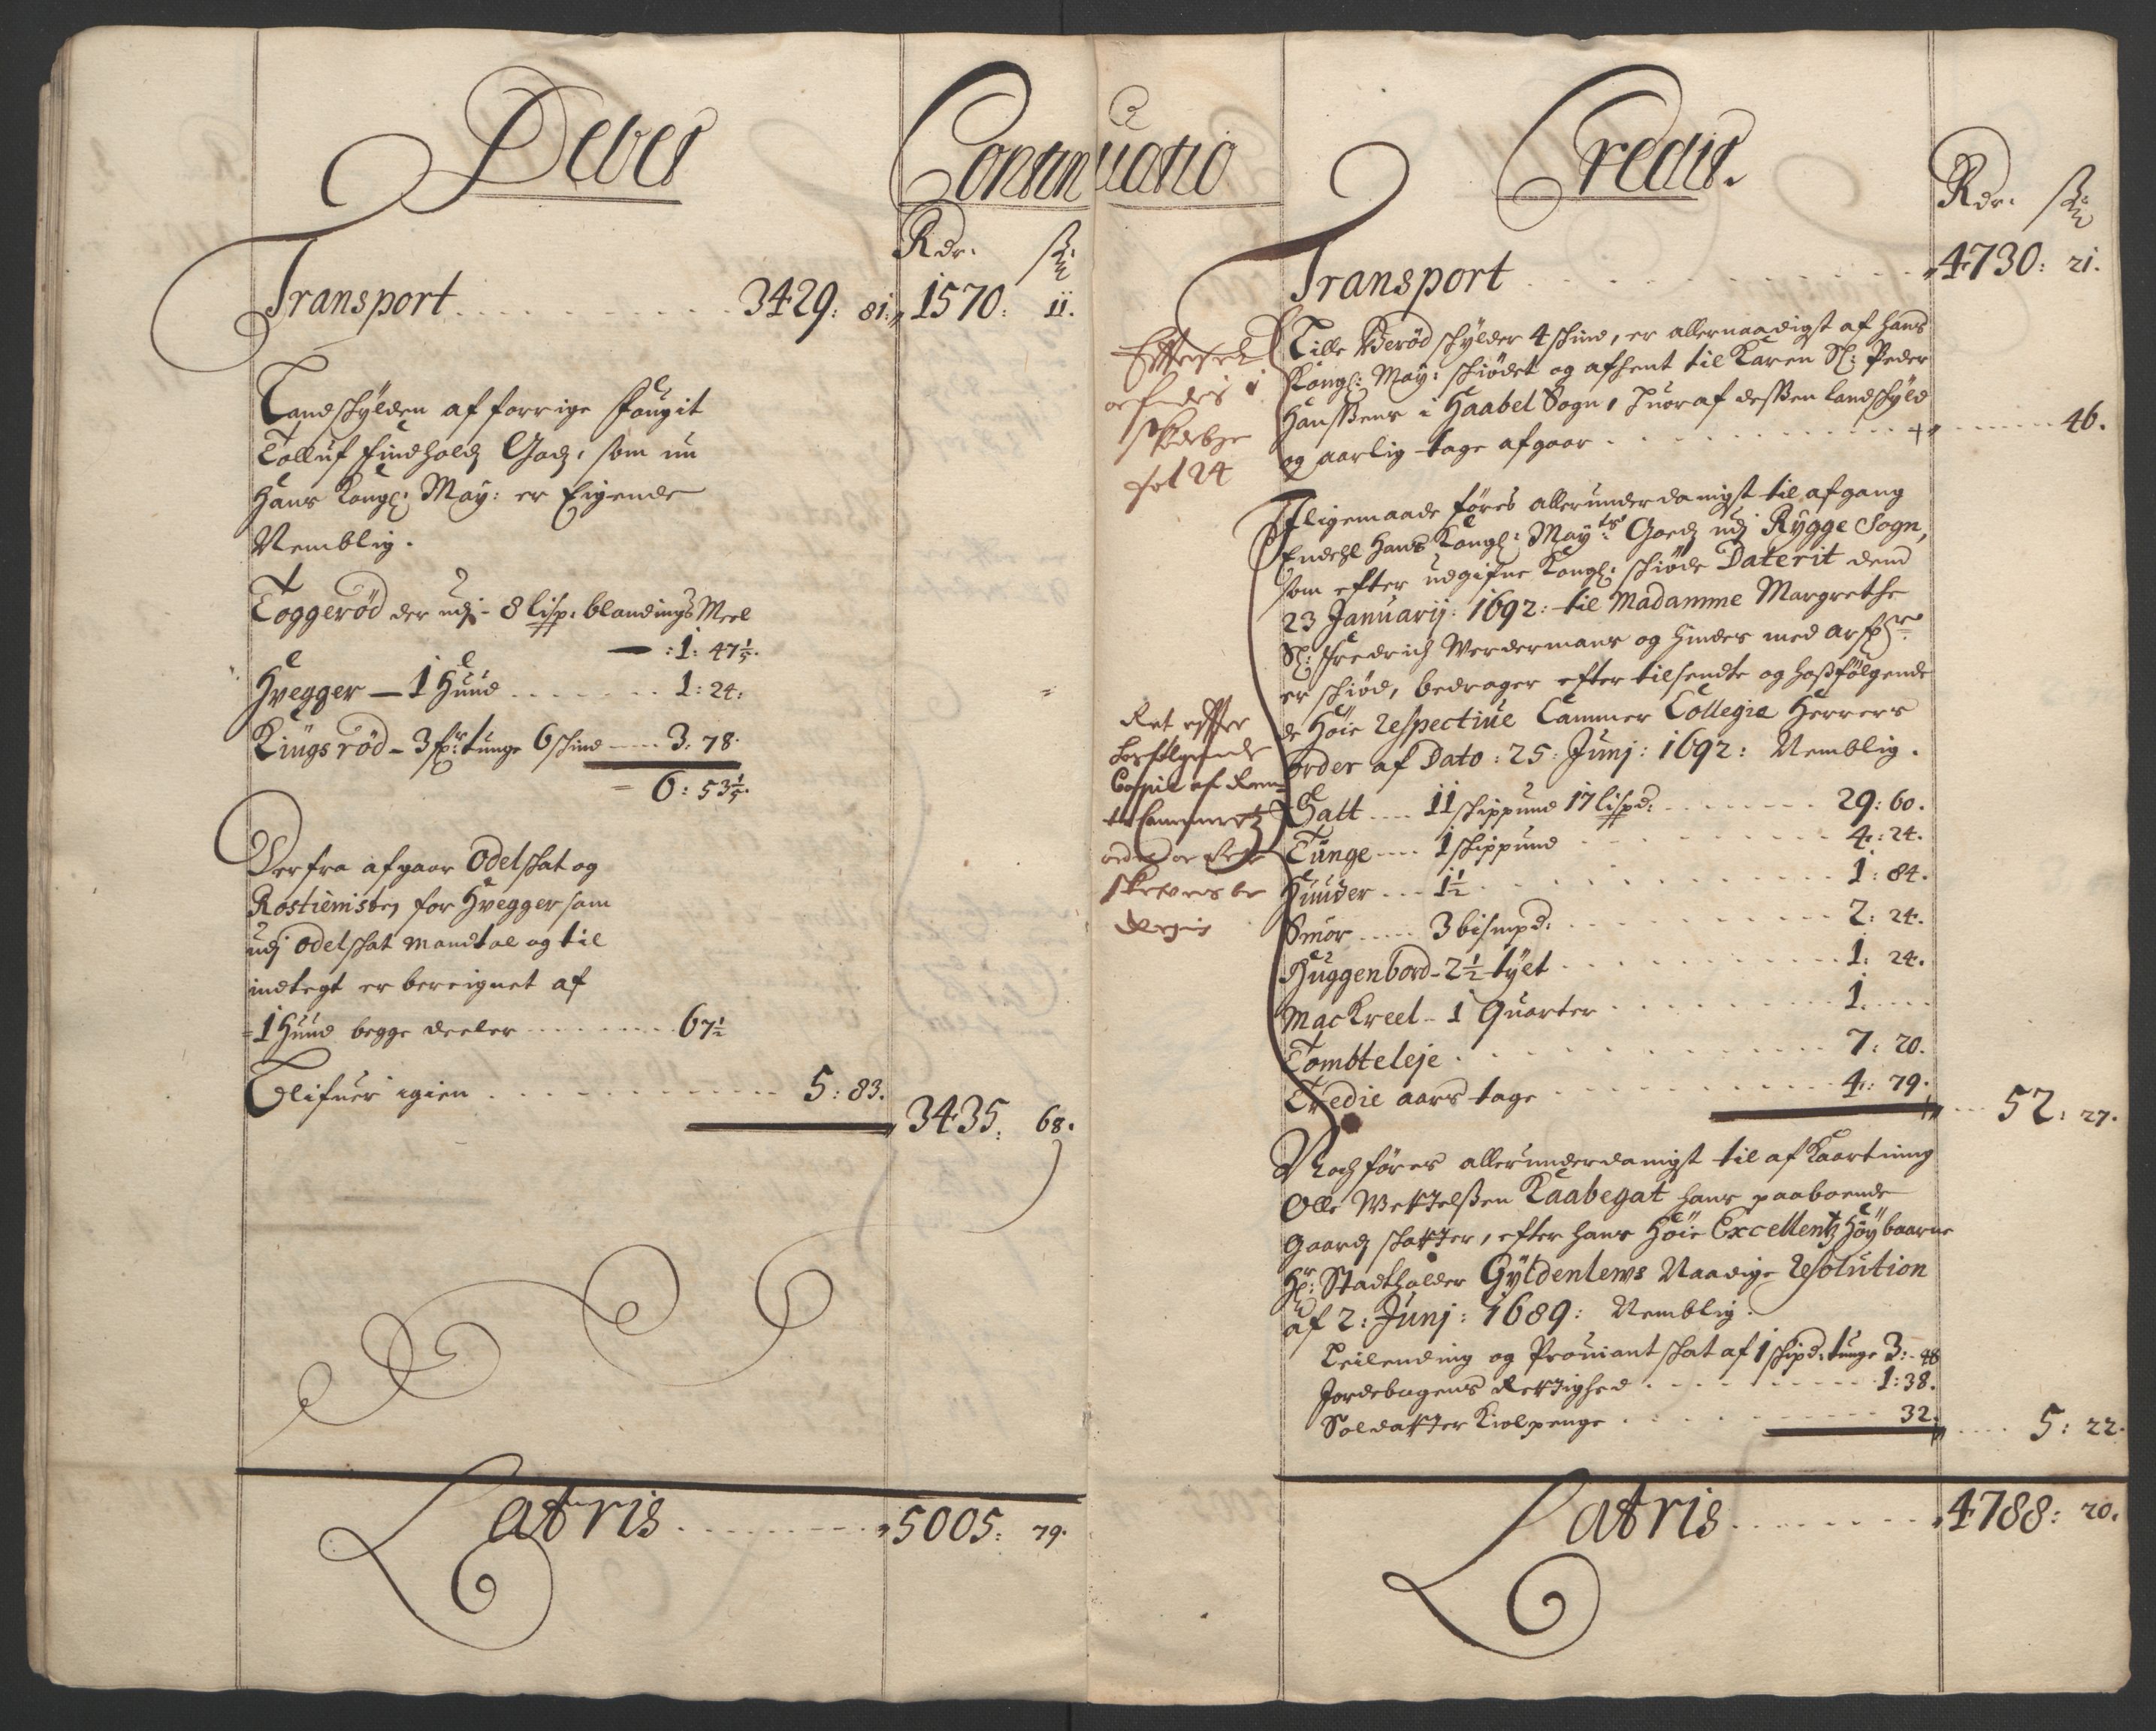 Debet
Continuatio
Rdr. ß
Transport . . . . . 3429: 81. 1570: 11.
Landskylden af forrige fougit
Tolluf findholdz Godz, som nu
Hans Kongl: May: er Eigende
Nemblig.
Toggerød der udj - 8 lisp: blandings Meel
— :1: 47 1/5.
Hvegger — 1 Huud . . . . . . 1: 24:
Kiugs rød - 3 tunge 6 skind — 3. 78.
6: 53 1/5.
Derfra afgaar Odelskat og
Rostienisten for Hvegger som
udj odelskat Mandtal og til
indtegt er bereignet af
1 Huud begge deeler . . . . . . . 67 1/2
Blifuer igien . . . . . . . . . 5: 83.
3435: 68.
Latris . . . . . . . . 5005: 79.
Credit.
Rdr. ß
Transport . . . . . . . . . 4730: 21.
Lille skylder 4 skind, er allernaadigst af Hans
Kongl: May: skiødet og afhent til Karen Sl: Peder
Hanssens i Haabel Sogn, huoraf dessen landskyld
og aarlig tage afgaar . . . . . . . . . 46.
fol 24
Iligemaade føres allerunderdanigst til afgang
Endehl Hans Kongl: Mayts: Goedz udj Rygge Sogn,
som efter udgifne Kongl: skiøde Daterit dend
23 Januarij: 1692: til Madamme Margrethe
Sl: Fredrich Werdermans og hindes med
er skiød, bedrager efter tilsendte og hoßfølgende
de Høie respective Cammer Collegie Herrers
order af Dato: 25: Junj: 1692: Nemblig.
Hosfølgende
Copie af Ren-
te Cammeretz
Salt .... 11 skippund 17 lispd: . . . . . . 29: 60.
Tunge .... 1 skippund . . . . . 4: 24.
Huuder ... 1 1/2 . . . . . . . . 1: 84.
Smør ..... 3 bismpd: . . . . . . 2: 24.
Huggenbord - 2 1/2 tylt . . . . . . 1: 24.
Mackreel - 1 Quarter . . . . . . 1. ....
Tombteleje . . . . . . . . 7: 20.
Tredie aars tage . . . . . . . 4: 79.
52: 27.
Noch føres allerunderdanigst til afkaartning
Olle Wettelßen Kaabegat hans paaboende
Gaardz skatter, efter hans Høie Excellentz Høybaarne
Hr: Stadtholder Gyldenlews Naadige resolution
af 2: Junj: 1689: Nemblig.
Leilending og Proviantskat af 1 skipd: tunge 3: 48
Jordebogens Rettighed . . . . . . . 1: 38.
Soldatter Kiolpenge . . . . . . . 32.
5: 22.
Latris . . . . . . . . 4788: 20.